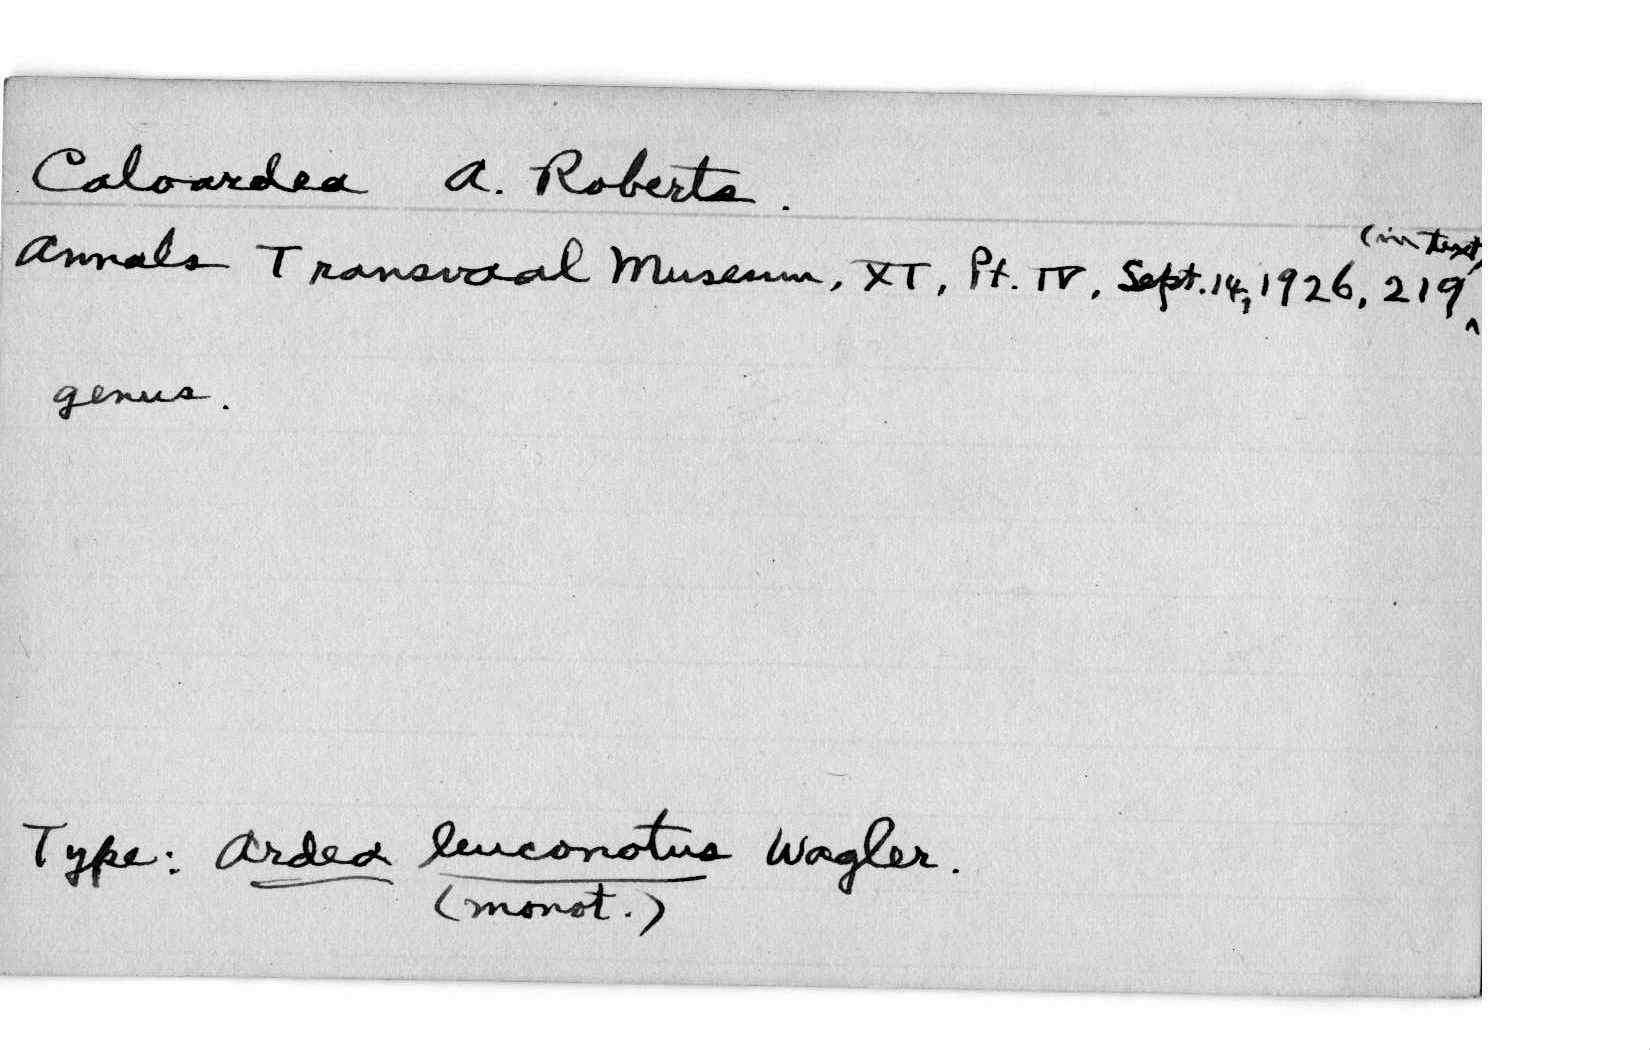 Caloardea A. Roberts.
Annals Transvaal Museum, XI, Pt. IV, Sept. 14, 1926, 219 ^ (in text)
genus.
Type: Ardea leuconotus Wagler.
(monot.)